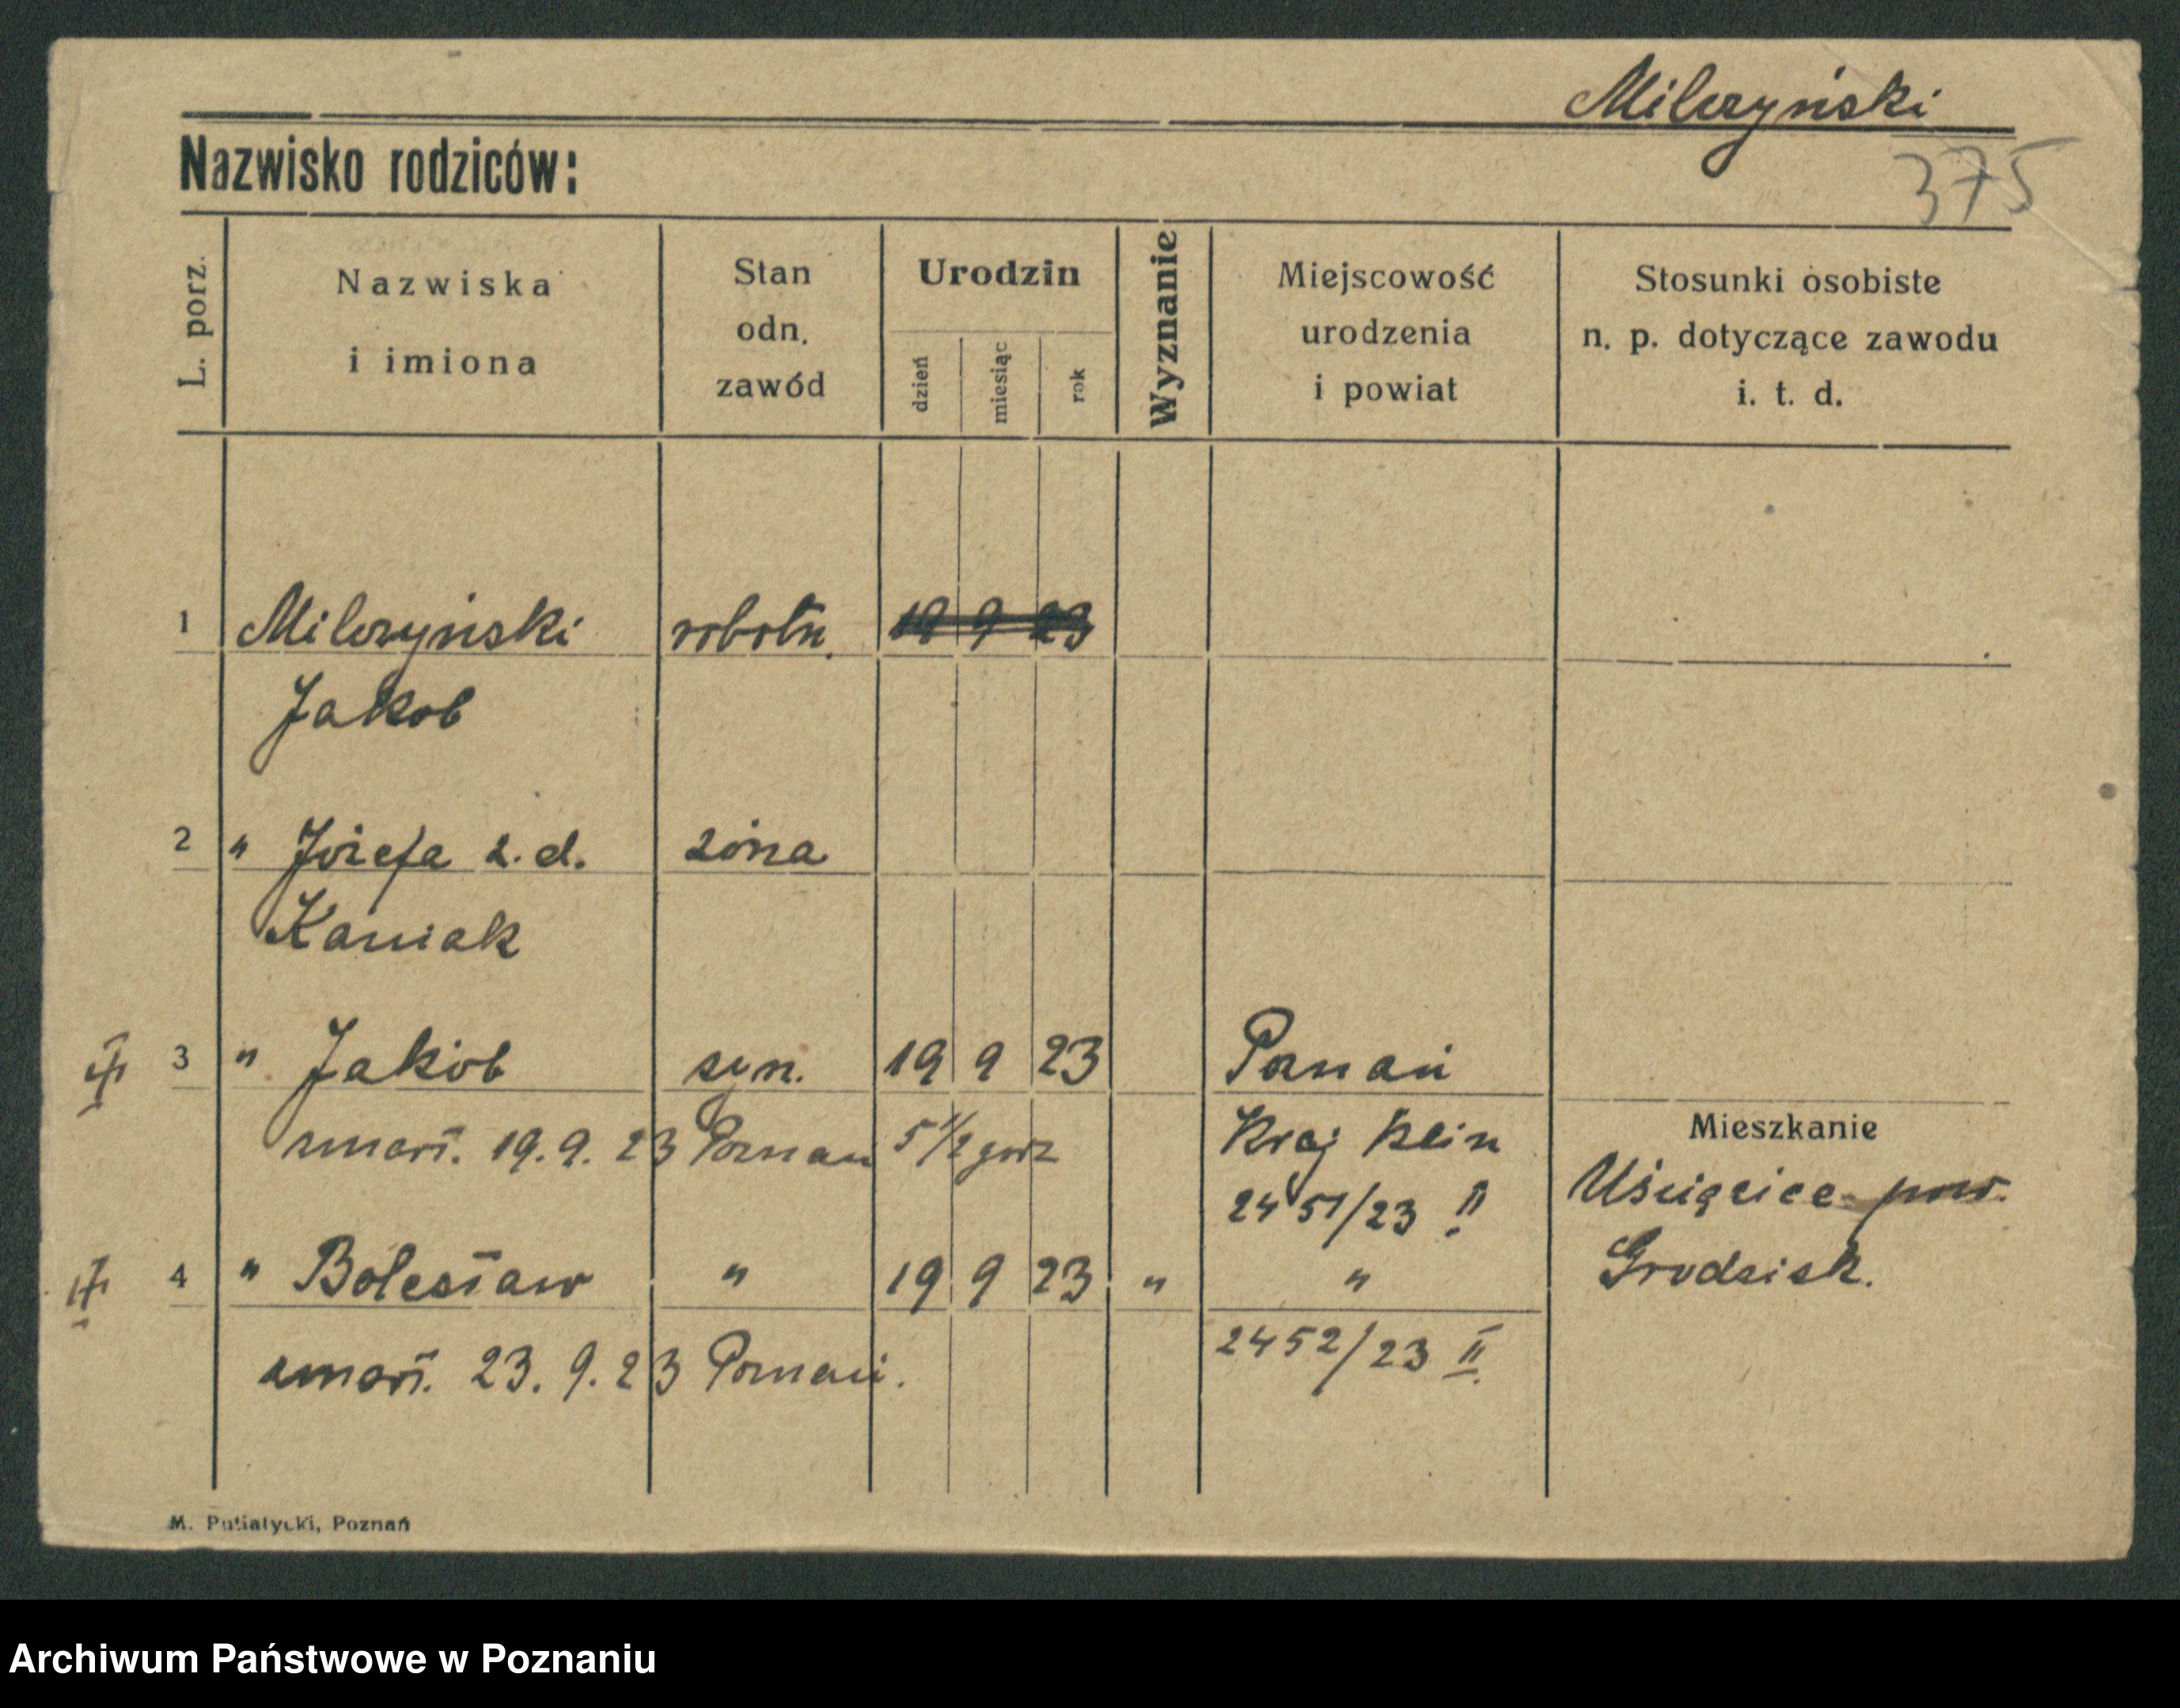 Milczyński
375
Nazwisko rodziców:
L. porz.
Nazwiska
i imiona
Stan
odn.
zawód
Urodzin
dzień
miesiąc
rok
Wyznanie
Miejscowość
urodzenia
i powiat
Stosunki osobiste
n. p. dotyczące zawodu
i. t. d.
1 Milczyński robotn. 19 9 23
Jakob
2 " Józefa z. d. żona
Kaniak
3 " Jakób syn. 19 9 23 Poznań
zmarł. 19. 9. 23 Poznań 5 1/2 godz Kraj Klin
Mieszkanie
2451/23 II
Uścięcice pow.
Grodzisk.
4 " Bolesław " 19 9 23 " "
zmarł. 23. 9. 23 Poznań. 2452/23 II.
M. Putiatycki, Poznań
Archiwum Państwowe w Poznaniu